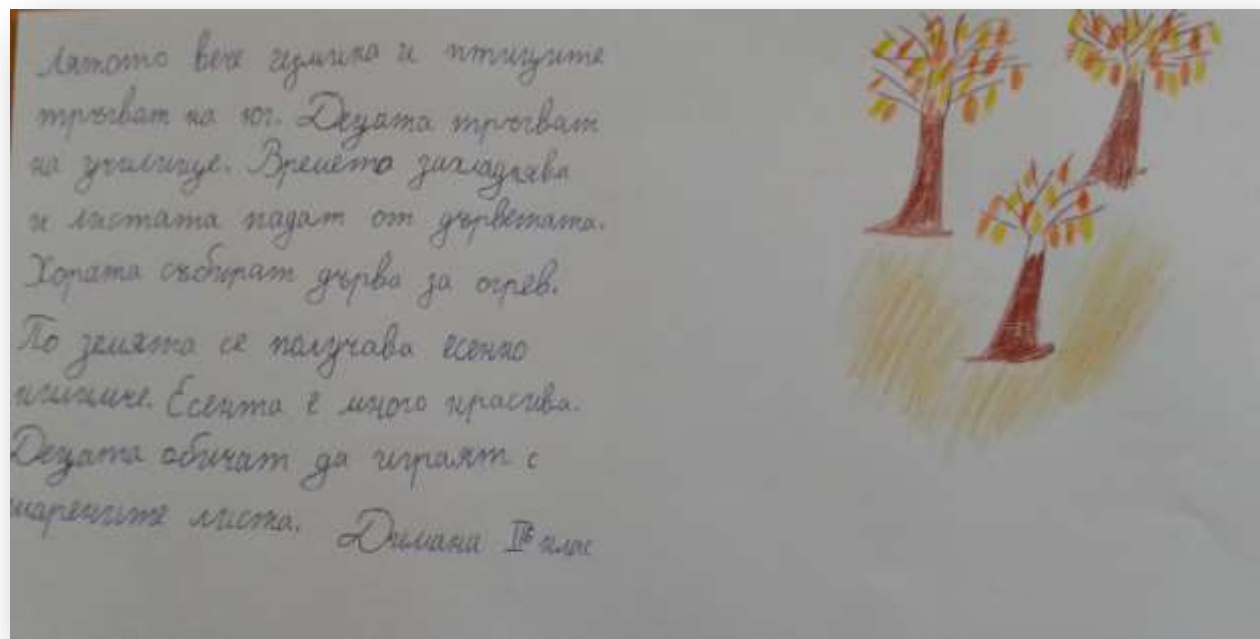 Лятото вече измина и птиците
тръгват на юг. Децата тръгват
на училище. Времето захладнява
и листата падат от дърветата.
Хората събират дърва за огрев.
По земята се получава есенно
килимче. Есента е много красива.
Децата обичат да играят с
шарените листа.
Димана IIб клас